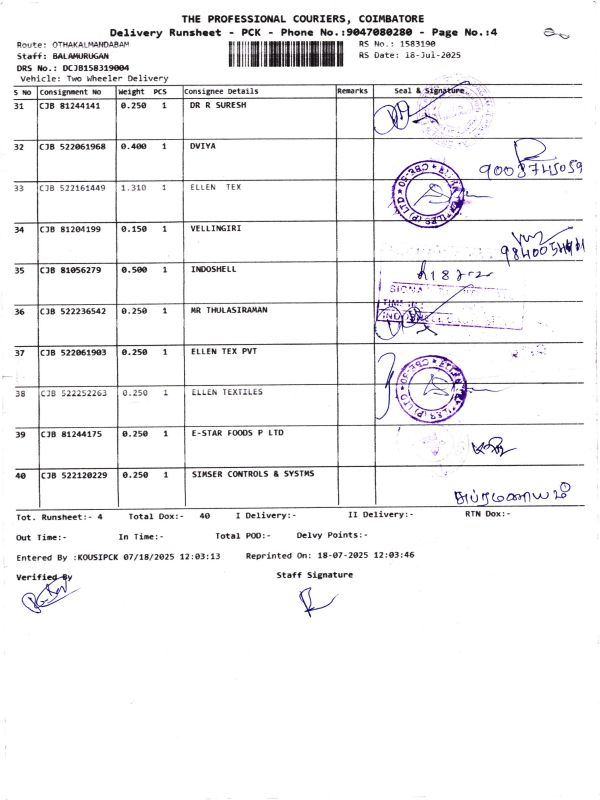 THE PROFESSIONAL COURIERS, COIMBATORE
Delivery Runsheet - PCK - Phone No.:9047080280 - Page No.:4
Route: OTHAKALMANDABAM RS No.: 1583190
Staff: BALAMURUGAN RS Date: 18-Jul-2025
DRS No.: DCJB158319004
Vehicle: Two Wheeler Delivery
S No Consignment No Weight PCS Consignee Details Remarks Seal & Signature
31 CJB 81244141 0.250 1 DR R SURESH
32 CJB 522061968 0.400 1 DVIYA
9003745059
33 CJB 522161449 1.310 1 ELLEN TEX
34 CJB 81204199 0.150 1 VELLINGIRI
35 CJB 81056279 0.500 1 INDOSHELL
36 CJB 522236542 0.250 1 MR THULASIRAMAN
37 CJB 522061903 0.250 1 ELLEN TEX PVT
38 CJB 522252263 0.250 1 ELLEN TEXTILES
39 CJB 81244175 0.250 1 E-STAR FOODS P LTD
40 CJB 522120229 0.250 1 SIMSER CONTROLS & SYSTMS
சுப்ரமணியம்
Tot. Runsheet:- 4 Total Dox:- 40 I Delivery:- II Delivery:- RTN Dox:-
Out Time:- In Time:- Total POD:- Delvy Points:-
Entered By :KOUSIPCK 07/18/2025 12:03:13 Reprinted On: 18-07-2025 12:03:46
Verified By Staff Signature